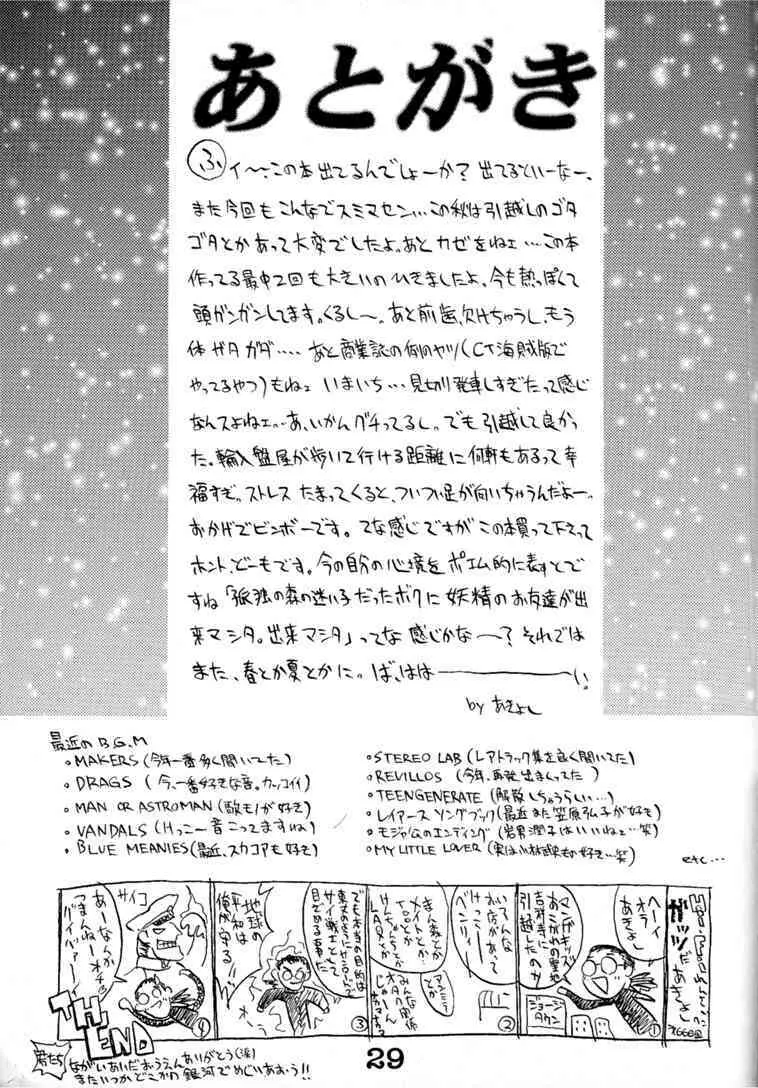 あとがき
ふィ〜、この本出てるんでしょーか？出てるといーなー、
また今回もこんなでスミマセン…この秋は引越しのゴタ
ゴタとかあって大変でしたよ。あとカゼをねェ…この本
作ってる最中2回も大きいのひきましたよ、今も熱っぽくて
頭ガンガンしてます。くるし〜。あと前歯、欠けちゃうし、もう
体ガタガタ‥‥あと商業誌の例のヤツ(CT海賊版で
やってるやつ)もねェいまいち…見切り発車しすぎたって感じ
なんスよねェ…あ、いかんグチってるし。でも引越して良かっ
た。輸入盤屋が歩いて行ける距離に何軒もあるって幸
福すぎ。ストレスたまってくると、ついつい足が向いちゃうんだよー。
おかげでビンボーです。てな感じですがこの本買って下さって
ホントどーもです。今の自分の心境をポエム的に表すとで
すね「孤独の森の迷い子だったボクに妖精のお友達が出
来マシタ。出来マシタ」ってな感じかな〜？それでは
また、春とか夏とかに。ば、はは――――い。
by あきよし
最近のB.G.M
。MAKERS(今年一番多く聞いてた)
。DRAGS(今、一番好きな音。カッコイイ)
。MAN OR ASTROMAN(敵モノが好き)
。VANDALS(けっこー音こってますね)
。BLUE MEANIES(最近、スカコアも好き)
。STEREO LAB(レアトラック集を良く聞いてた)
。REVILLOS(今年、再発出まくってた)
。TEENGENERATE(解散しちゃうらしい…)
。レイアースソングブック(最近また笠原弘子が好き)
。モジャ公のエンディング(岩男潤子はいいねェ…笑)
。MY LITTLE LOVER(実は小林武史も好き…笑)
etc…
ガッツだあきよし
へーイ
オラ
あきよし
マンガキッズ
あこがれの聖地
吉祥寺に
引越したのサ
ジョージ
タウン
①
いろんな
お店があって
けっこー
ベンリィ
まん森とか
メイトとか
LAOXとか
アニミテ
とか
みんな
オタク関係
じゃーん
②
でも本当の目的は
サイ戦士として
目ざめる事だ
地球の
平和は
俺が守る!!
③
サイコ
あーなんか
つまんねーオチ
グイ・バァー
④
TH END
君たち
ながいあいだおうえんありがとう(涙)
またいつかどこかの銀河でめぐりあおう!!
29